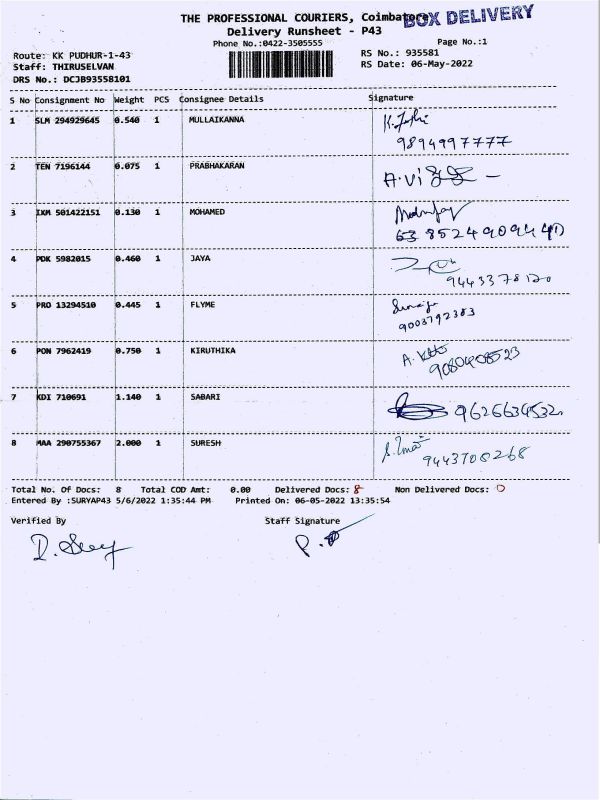 THE PROFESSIONAL COURIERS, Coimbatore
BOX DELIVERY
Delivery Runsheet - P43
Phone No.:0422-3505555
Page No.:1
Route: KK PUDHUR-1-43
RS No.: 935581
Staff: THIRUSELVAN
RS Date: 06-May-2022
DRS No.: DCJB93558101
S No Consignment No Weight PCS Consignee Details Signature
1 SLM 294929645 0.540 1 MULLAIKANNA
9894997777
2 TEN 7196144 0.075 1 PRABHAKARAN
3 IXM 501422151 0.130 1 MOHAMED
4 PDK 5982015 0.460 1 JAYA
9443378120
5 PRO 13294510 0.445 1 FLYME
9003792383
6 PON 7962419 0.750 1 KIRUTHIKA
9080408523
7 KDI 710691 1.140 1 SABARI
9626634532
8 MAA 290755367 2.000 1 SURESH
9443708268
Total No. Of Docs: 8 Total COD Amt: 0.00 Delivered Docs: 8 Non Delivered Docs: 0
Entered By :SURYAP43 5/6/2022 1:35:44 PM Printed On: 06-05-2022 13:35:54
Verified By Staff Signature